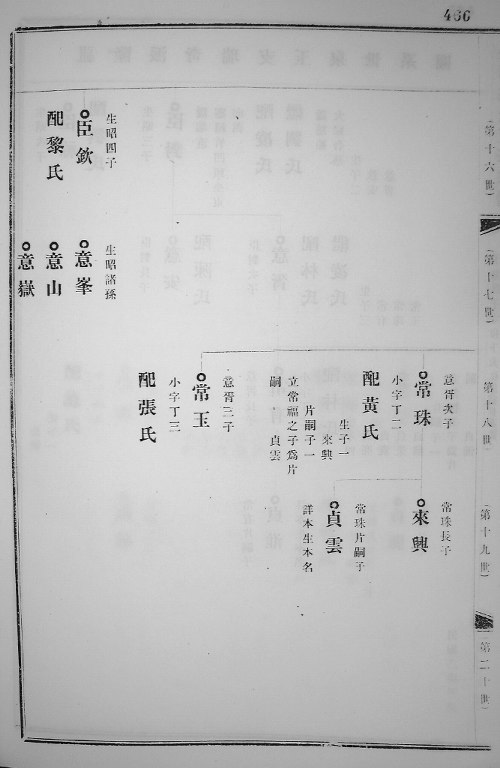 466
（第十六世）
（第十七世）
（第十八世）
（第十九世）
（第二十世）
意胥次子
常珠
小字丁二
配黃氏
生子一
來興
片嗣子一
立常福之子為片
嗣
貞雲
意胥三子
常玉
小字丁三
配張氏
常珠長子
來興
常珠片嗣子
貞雲
詳本生本名
生昭四子
臣欽
配黎氏
生昭諸孫
意峯
意山
意嶽